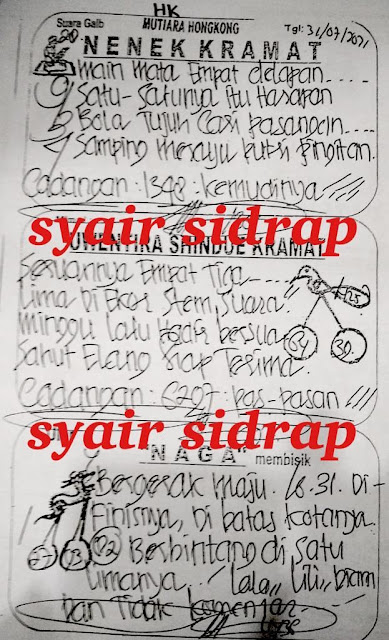 HK
Suara Gaib
MUTIARA HONGKONG
Tgl: 31/07/2021
"NENEK KRAMAT"
Main Mata Empat delapan....
Satu-Satunya itu Harapan
Bola Tujuh Cari pasangan....
Samping merayu putri pingitan.
Cadangan: 1398: kemudinya
syair sidrap
SHINDUE KRAMAT
Empat Tiga
Lima Di Ekor Stem, Suara.
Minggu lalu Hadir bersua
Sahut Elang Siap Terima.
64
39
Cadangan: 6207: pas-pasan
syair sidrap
"NAGA" membisik
Bergerak maju. 6.31. Di-
Finisnya, Di batas kotanya.
Berbintang di Satu
Limanya
Dan Tidak